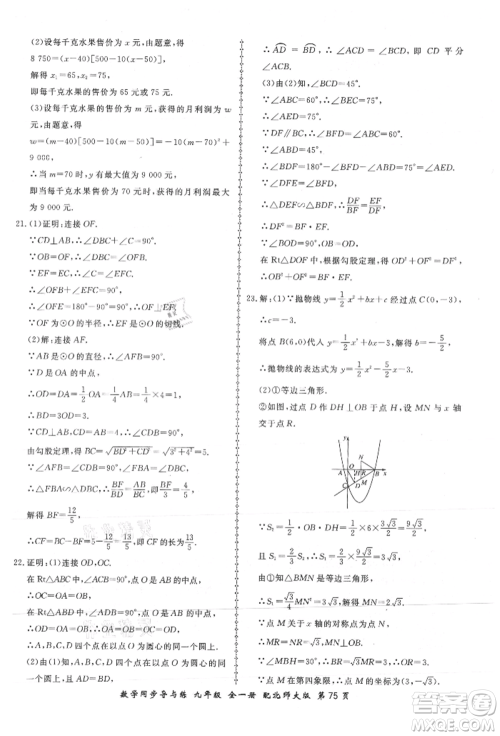 (2)设每千克水果售价为 x 元,由题意,得
8 750=(x-40)[500-10(x-50)],
解得 x₁=65,x₂=75.
即每千克水果售价为 65 元或 75 元.
(3)设每千克水果售价为 m 元,获得的月利润为 y 元,由题意,得
w=(m-40)[500-10(m-50)]=-10(m-70)²+
9 000,
∴当 m=70 时,y 有最大值为 9 000 元.
即当每千克水果售价为 70 元时,获得的月利润最大值为 9 000 元.
21.(1)证明:连接 OF.
∵CD⊥AB,∴∠DBC+∠C=90°.
∵OB=OF,∴∠DBC=∠OFB.
∵EF=EC,∴∠C=∠EFC.
∴∠OFB+∠EFC=90°.
∴∠OFE=180°-90°=90°.
∴OF⊥EF.
∵OF 为⊙O 的半径,∴EF 是⊙O 的切线.
(2)解:连接 AF.
∵AB 是⊙O 的直径,∴∠AFB=90°.
∵D 是 OA 的中点,
∴OD=DA=1/2 OA=1/4 AB=1/4×4=1.
∴BD=3OD=3.
∵CD⊥AB,CD=AB=4,∴∠CDB=90°.
由勾股定理,得BC=√(BD²+CD²)=√(3²+4²)=5.
∵∠AFB=∠CDB=90°,∠FBA=∠DBC,
∴△FBA∽△DBC.∴BF/BD=AB/BC.
解得 BF=12/5.
∴CF=BC-BF=5-12/5=13/5,即 CF 的长为 13/5.
22.证明:(1)连接 OD,OC.
在 Rt△ABC 中,∠ACB=90°,点 O 是 AB 的中点,
∴OC=OA=OB.
在 Rt△ABD 中,∠ADB=90°,点 O 是 AB 的中点,
∴OD=OA=OB.
∴OA=OB=OC=OD.
∴A,B,C,D 四个点在以点 O 为圆心的同一个圆上.
(2)由(1)知,A,B,C,D 四个点在⊙O 上,且 AD=BD,
∴AD=BD.∴∠ACD=∠BCD.即 CD 平分
∠ACB.
(3)由(2)知,∠BCD=45°.
∵∠ABC=60°,∴∠BEC=75°.
∴∠AED=75°.
∵DF∥BC,∴∠BFD=∠ABC=60°.
∵∠ABD=45°,
∴∠BDF=180°-∠BFD-∠ABD=75°=∠AED.
∵∠DFE=∠BFD,∴△DEF∽△BDF.∴DF/BF=
EF/DF.
∴DF²=BF·EF.
在 Rt△DOF 中,根据勾股定理,得OD²+OF²=DF².
∵OB=OD,∴BO²+OF²=BF·EF.
即 BO²+OF²=EF·BF.
23.解:(1)∵抛物线 y=1/2x²+bx+c 经过点 C(0,-3),
∴c=-3.
将点 B(6,0)代入 y=1/2x²+bx-3,得 b=-5/2.
∴抛物线的表达式为 y=1/2x²-5/2x-3.
(2)①等边三角形.
②如图,过点 D 作 DH⊥OB,设 MN 与 x 轴
交于点 R.
∵S₁=1/2×OB×DH=1/2×6×3√3/2=9√3/2,
∴S₂=2/3S₁=3√3.
由①知,△OMN 是等边三角形,
∴S₂=√3/4OM²=3√3.
∴OM=2√3.∴MR=√3.
∴OR=√(OM²-MR²)=3.
∵点 M 在第四象限,
∴点 M 的坐标为(3,-√3).
∵点 D 的坐标为(3/2,-3√3/2),
数学同步导与练 九年级 全一册 配北师大版 第 75 页